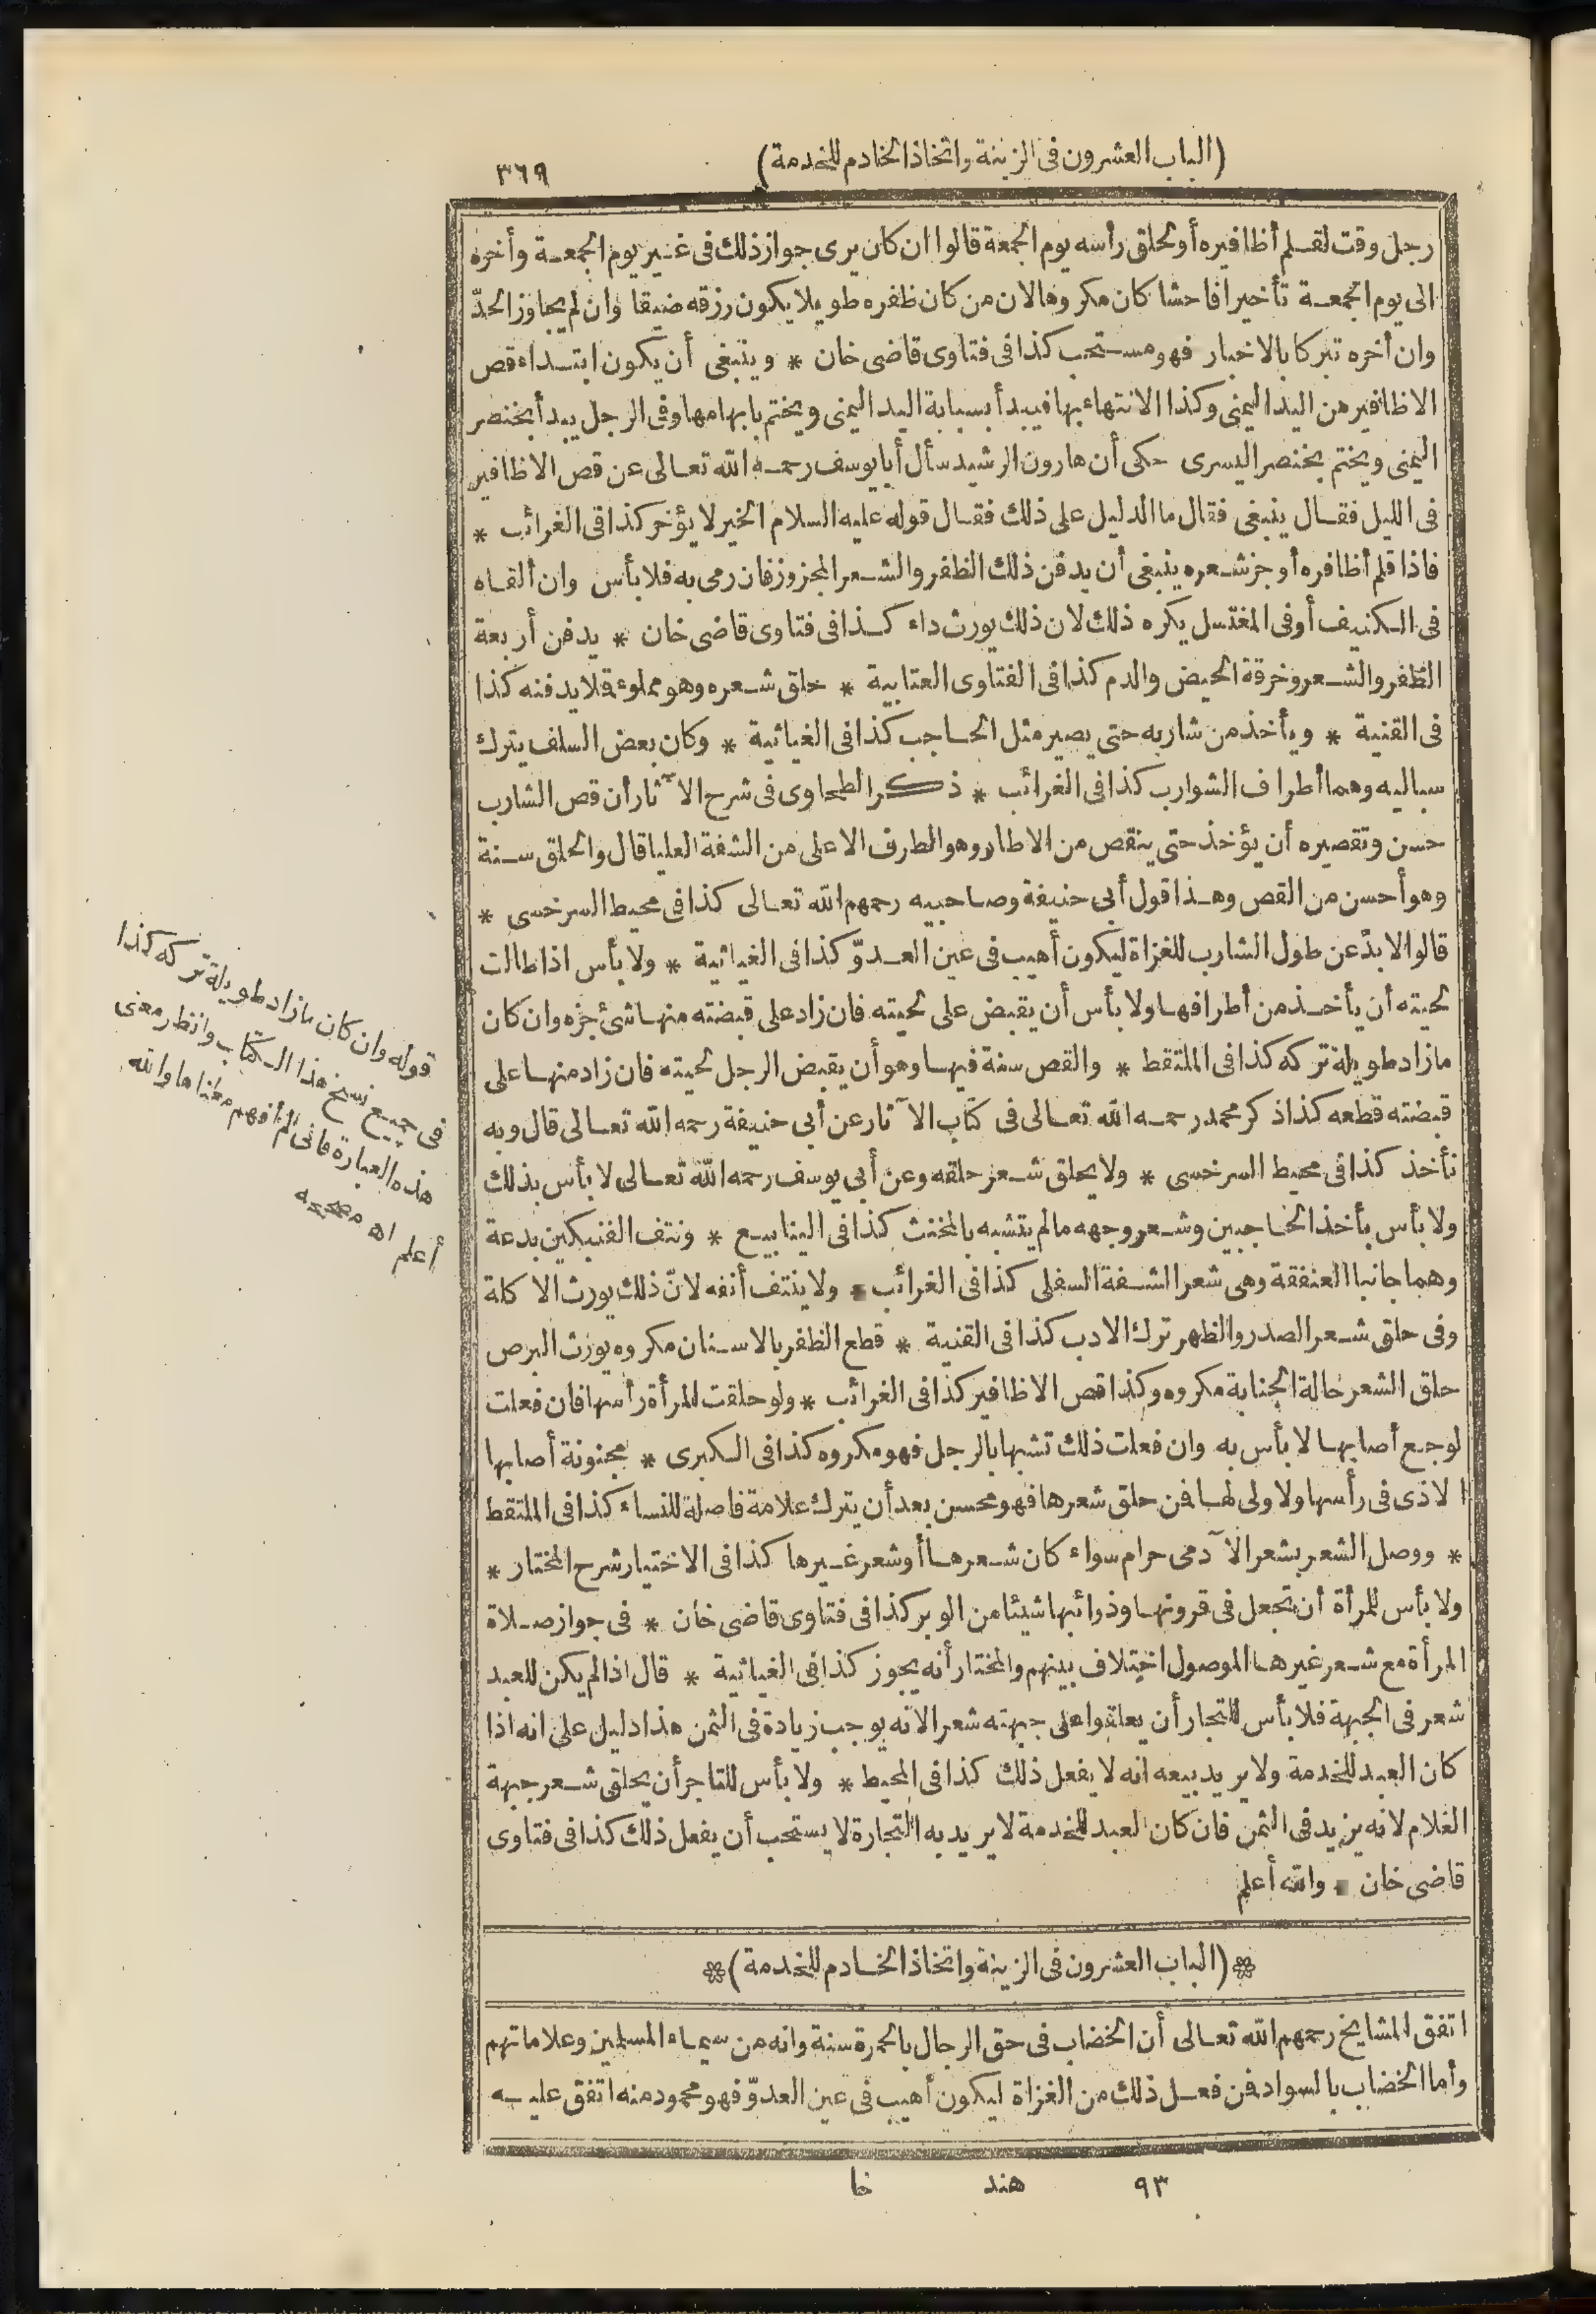 (الباب العشرون في الزينة واتخاذ الخادم للخدمة)
٣٦٩
رجل وقت لقلم أظافيره أو لحلق رأسه يوم الجمعة قالوا ان كان يرى جواز ذلك في غير يوم الجمعة وأخره
الى يوم الجمعة تأخيرا فاحشا كان مكروها لان من كان ظفره طويلا يكون رزقه ضيقا وان لم يجاوز الحدّ
وان أخره تبركا بالاخبار فهو مستحب كذا في فتاوى قاضى خان * وينبغى أن يكون ابتداء قص
الاظافير من اليد اليمنى وكذا الانتهاء بها فيبدأ بسبابة اليد اليمنى ويختم بابهامها وفى الرجل يبدأ بخنصر
اليمنى ويختم بخنصر اليسرى حكى أن هارون الرشيد سأل أبا يوسف رحمه الله تعالى عن قص الاظافير
فى الليل فقال ينبغى فقال ما الدليل على ذلك فقال قوله عليه السلام الخير لا يؤخر كذا في الغرائب *
فاذا قلم أظافره أو جز شعره ينبغى أن يدفن ذلك الظفر والشعر المجزوز فان رمى به فلا بأس وان ألقاه
فى الكنيف أو فى المغتسل يكره ذلك لان ذلك يورث داء كذا في فتاوى قاضى خان * يدفن أربعة
الظفر والشعر وخرقة الحيض والدم كذا في الفتاوى العتابية * حلق شعره وهو مملوء قلا يدفنه كذا
فى القنية * ويأخذ من شاربه حتى يصير مثل الحاجب كذا في الغياثية * وكان بعض السلف يترك
سباليه وهما أطراف الشوارب كذا في الغرائب * ذكر الطحاوى فى شرح الآثار أن قص الشارب
حسن وتقصيره أن يؤخذ حتى ينقص من الاطار وهو الطرف الاعلى من الشفة العليا قال والحلق سنة
وهو أحسن من القص وهذا قول أبى حنيفة وصاحبيه رحمهم الله تعالى كذا في محيط السرخسى *
قالوا لا بدّ عن طول الشارب للغزاة ليكون أهيب فى عين العدوّ كذا في الغياثية * ولا بأس اذا طالت
لحيته أن يأخذ من أطرافها ولا بأس أن يقبض على لحيته فان زاد على قبضته منها شئ جزه وان كان
ما زاد طويلة تركه كذا في الملتقط * والقص سنة فيها وهو أن يقبض الرجل لحيته فان زاد منها على
قبضته قطعه كذا ذكر محمد رحمه الله تعالى فى كتاب الآثار عن أبى حنيفة رحمه الله تعالى قال وبه
نأخذ كذا في محيط السرخسى * ولا يحلق شعر حلقه وعن أبى يوسف رحمه الله تعالى لا بأس بذلك
ولا بأس بأخذ الحاجبين وشعر وجهه ما لم يتشبه بالمخنث كذا في الينابيع * ونتف الفنيكين بدعة
وهما جانبا العنفقة وهى شعر الشفة السفلى كذا في الغرائب * ولا ينتف أنفه لانّ ذلك يورث الاكلة
وفى حلق شعر الصدر والظهر ترك الادب كذا في القنية * قطع الظفر بالاسنان مكروه يورث البرص
حلق الشعر حالة الجنابة مكروه وكذا قص الاظافير كذا في الغرائب * ولو حلقت المرأة رأسها فان فعلت
لوجع أصابها لا بأس به وان فعلت ذلك تشبها بالرجل فهو مكروه كذا في الكبرى * مجنونة أصابها
الاذى فى رأسها ولا ولى لها فمن حلق شعرها فهو محسن بعد أن يترك علامة فاصلة للنساء كذا في الملتقط
* ووصل الشعر بشعر الآدمى حرام سواء كان شعرها أو شعر غيرها كذا في الاختيار شرح المختار *
ولا بأس للمرأة أن تجعل فى قرونها وذوائبها شيئا من الوبر كذا في فتاوى قاضى خان * فى جواز صلاة
المرأة مع شعر غيرها الموصول اختلاف بينهم والمختار أنه يجوز كذا في الغياثية * قال اذا لم يكن للعبد
شعر فى الجبهة فلا بأس للتجار أن يعلقوا على جبهته شعرا لانه يوجب زيادة فى الثمن هذا دليل على انه اذا
كان العبد للخدمة ولا يريد بيعه انه لا يفعل ذلك كذا في المحيط * ولا بأس للتاجر أن يحلق شعر جبهة
الغلام لانه يزيد فى الثمن فان كان العبد للخدمة لا يريد به التجارة لا يستحب أن يفعل ذلك كذا في فتاوى
قاضى خان * والله أعلم
قوله وان كان ما زاد طويلة تركه كذا
فى جميع نسخ هذا الكتاب وانظر معنى
هذه العبارة فانى لم أفهم معناها والله
أعلم اه مصححه
* (الباب العشرون فى الزينة واتخاذ الخادم للخدمة) *
اتفق المشايخ رحمهم الله تعالى أن الخضاب فى حق الرجال بالحمرة سنة وانه من سيماء المسلمين وعلاماتهم
وأما الخضاب بالسواد فمن فعل ذلك من الغزاة ليكون أهيب فى عين العدوّ فهو محمود منه اتفق عليه
٩٣ هند خا